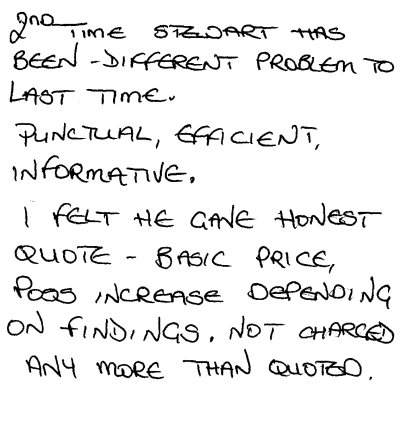 2ND TIME STEWART HAS
BEEN - DIFFERENT PROBLEM TO
LAST TIME.
PUNCTUAL, EFFICIENT,
INFORMATIVE.
I FELT HE GAVE HONEST
QUOTE - BASIC PRICE,
POSS INCREASE DEPENDING
ON FINDINGS. NOT CHARGED
ANY MORE THAN QUOTED.